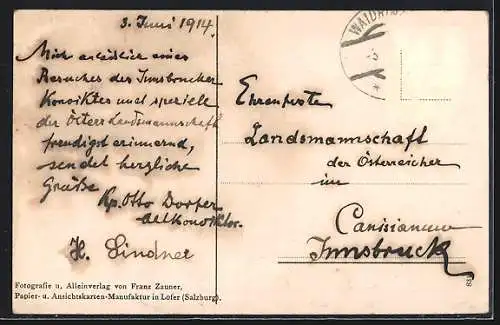 3. Juni 1914.
Mich anläßlich eines
Besuches des Innsbrucker
Konviktes und speziell
der Österr. Landsmannschaft
freudigst erinnernd,
sendet herzliche
Grüße
Kp. Otto Dorfer
Altkonviktor.
H. Lindner
Fotografie u. Alleinverlag von Franz Zauner,
Papier- u. Ansichtskarten-Manufaktur in Lofer (Salzburg).
WAIDRING
Ehrenfeste
Landsmannschaft
der Österreicher
im
Canisianum
Innsbruck